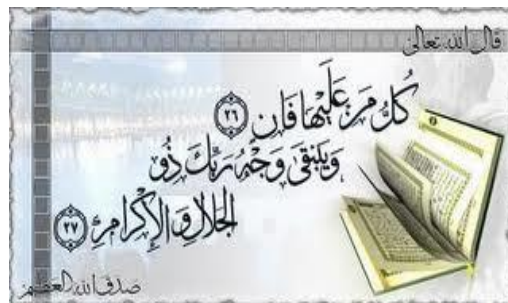 قال الله تعالى
كُلُّ مَنْ عَلَيْهَا فَانٍ ٢٦
وَيَبْقَىٰ وَجْهُ رَبِّكَ ذُو
الْجَلَالِ وَالْإِكْرَامِ ٢٧
صدق الله العظيم